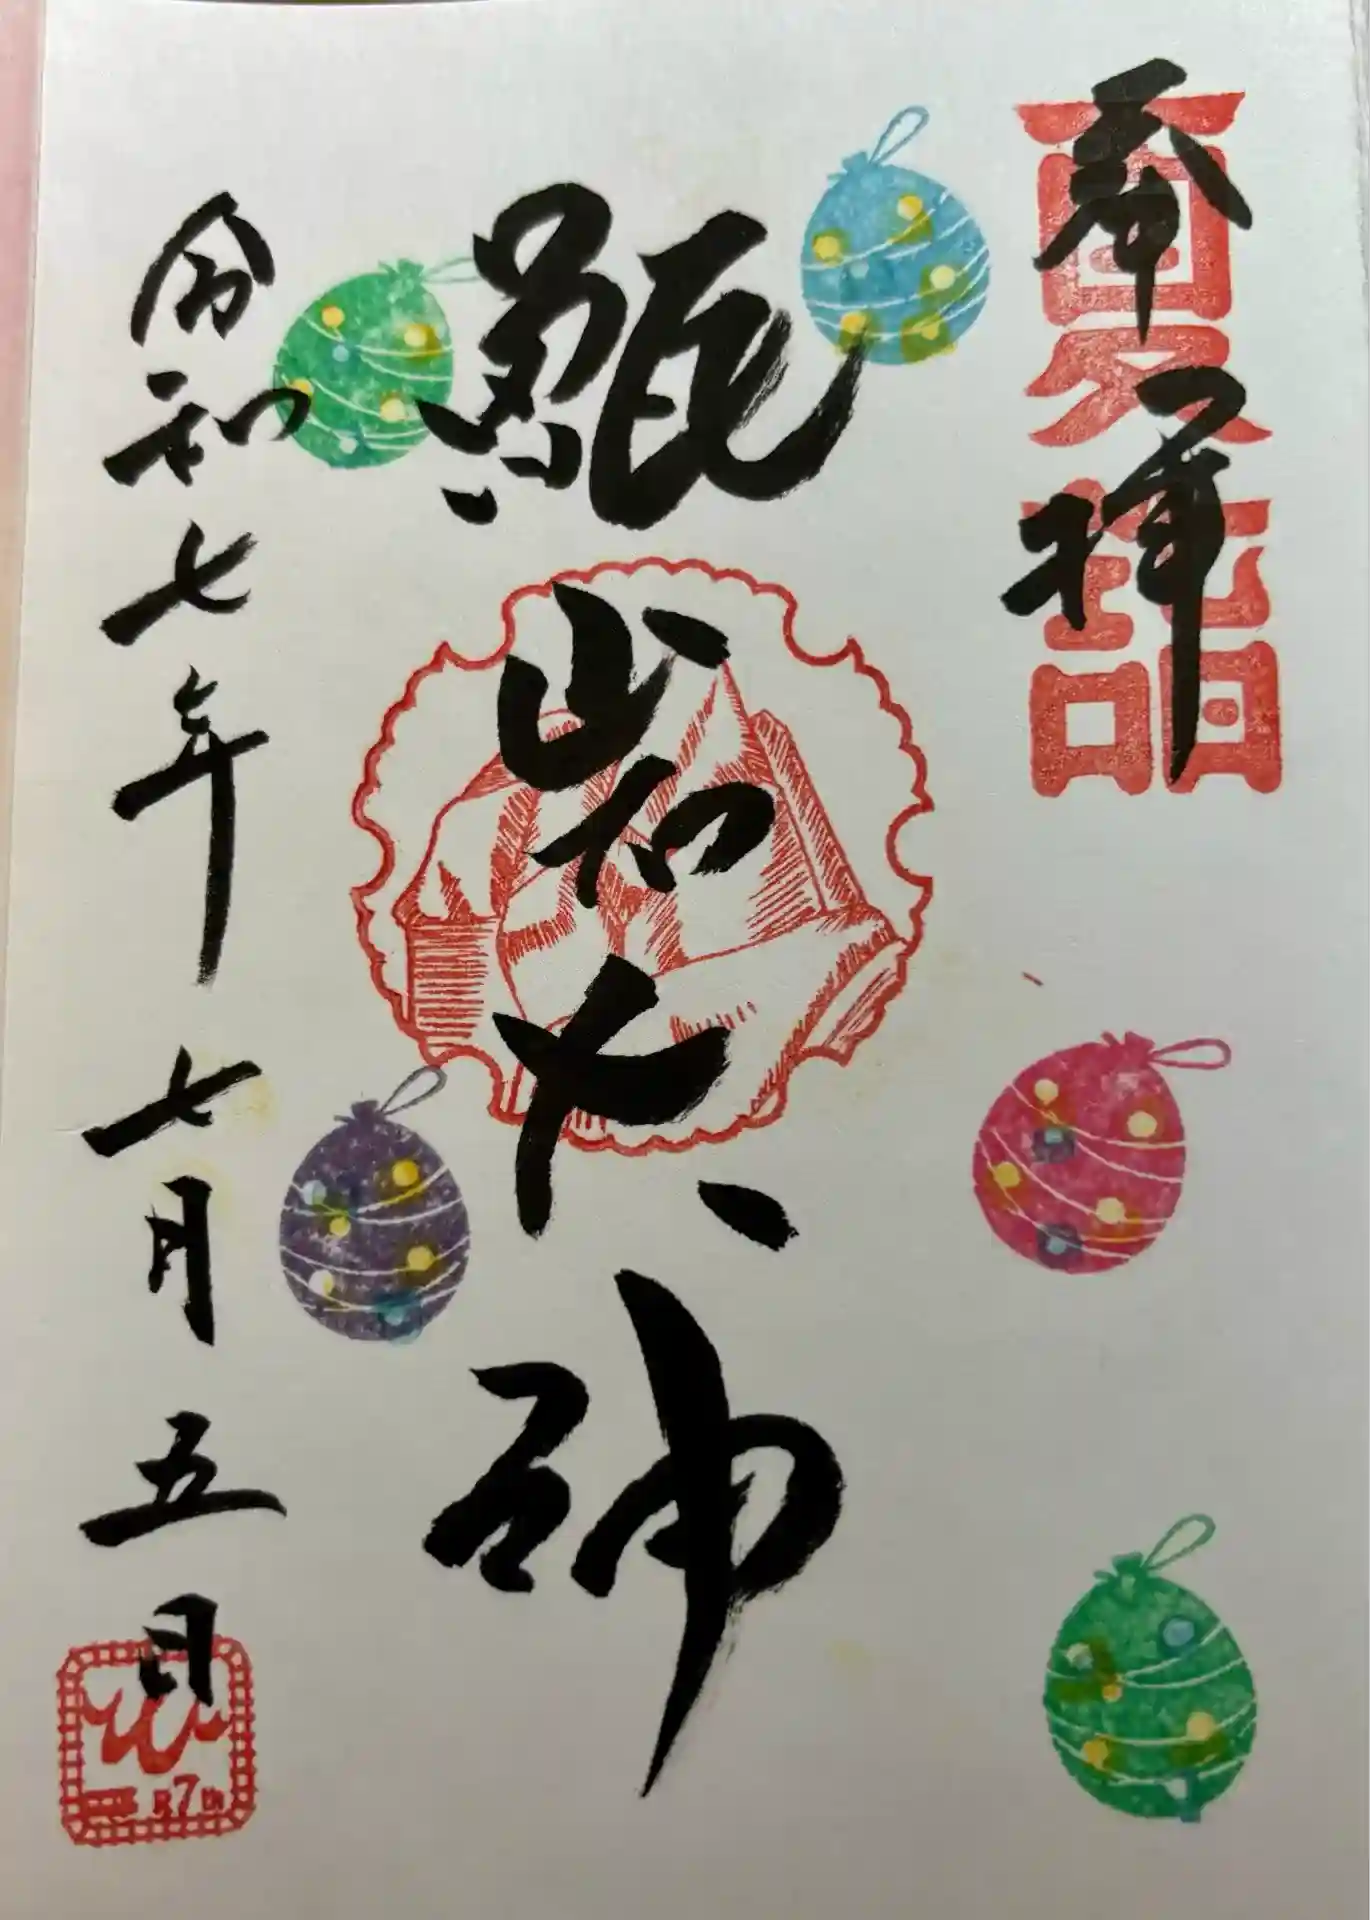 奉拝
夏詣
甑岩大神
令和七年 七月五日